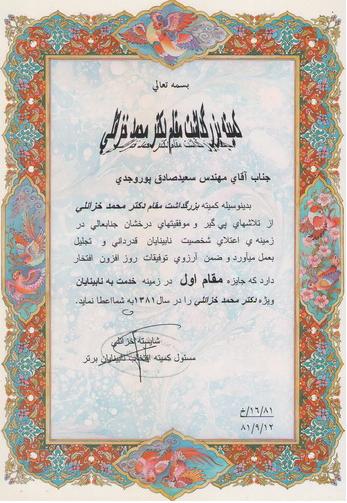 بسمه تعالي
كميته بزرگداشت مقام دكتر محمد خزائلي
جناب آقاي مهندس سعيدصادق پوروجدي
بدينوسيله كميته بزرگداشت مقام دكتر محمد خزائلي
از تلاشهاي پي گير و موفقيتهاي درخشان جنابعالي در
زمينه ي اعتلاي شخصيت نابينايان قدرداني و تجليل
بعمل مياورد و ضمن آرزوي توفيقات روز افزون افتخار
دارد كه جايزه مقام اول در زمينه خدمت به نابينايان
ويژه دكتر محمد خزائلي را در سال ۱۳۸۱به شمااعطا نمايد.
شايسته خزائلي
مسئول كميته انتخاب نابينايان برتر
۱۶/۸۱/خ
۸۱/۹/۱۲